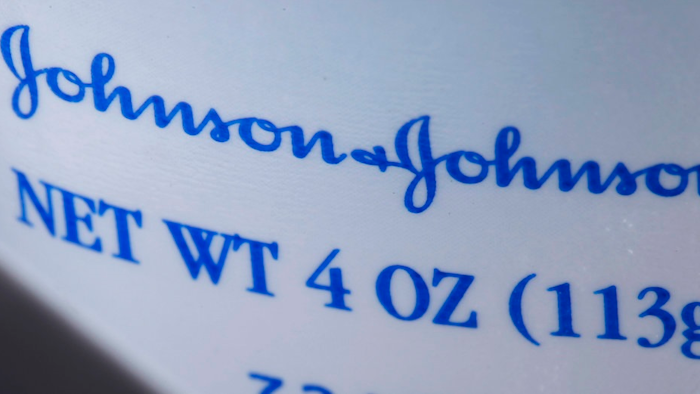 Johnson & Johnson
NET WT 4 OZ (113g